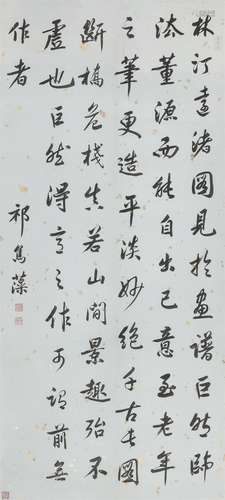 林汀遠渚圖見於畫譜巨然師
法董源而能自出己意至老年
之筆更造平淡妙絕千古長圖
斷橋危棧真若山間景趣殆不
虛也巨然得意之作可謂前無
作者
祁寯藻